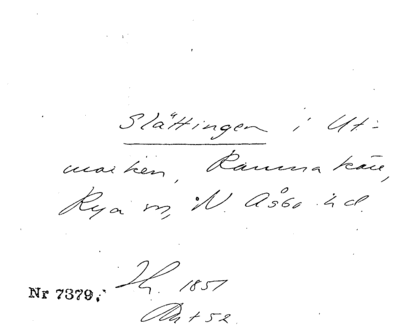 Slättingen i Ut=
marken, Ramnakärr,
Rya sn, N. Åsbo hd.
Nr 7379. Ih. 1851